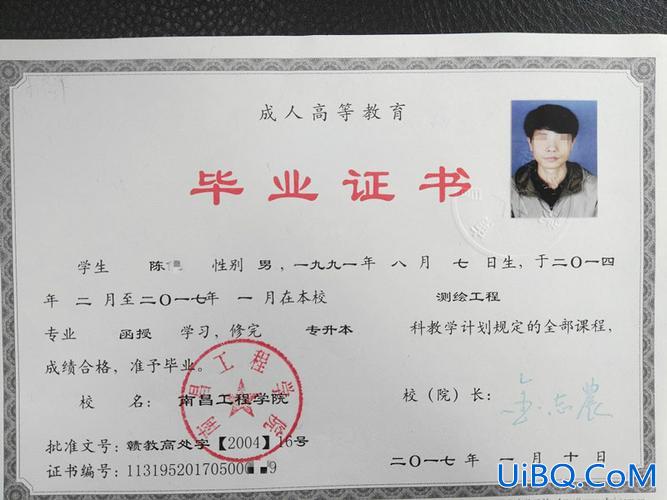 成人高等教育
毕业证书
学生 陈 性别 男，一九九一年 八 月 七 日生，于二〇一四
年 二 月至二〇一七年 一 月在本校 测绘工程
专业 函授 学习，修完 专升本 科教学计划规定的全部课程，
成绩合格，准予毕业。
校 名：南昌工程学院
南昌工程学院
校（院）长：金志农
批准文号：赣教高处字【2004】16号
证书编号：11319520170500 9
二〇一七年 一 月 十 日
UiBQ.CoM